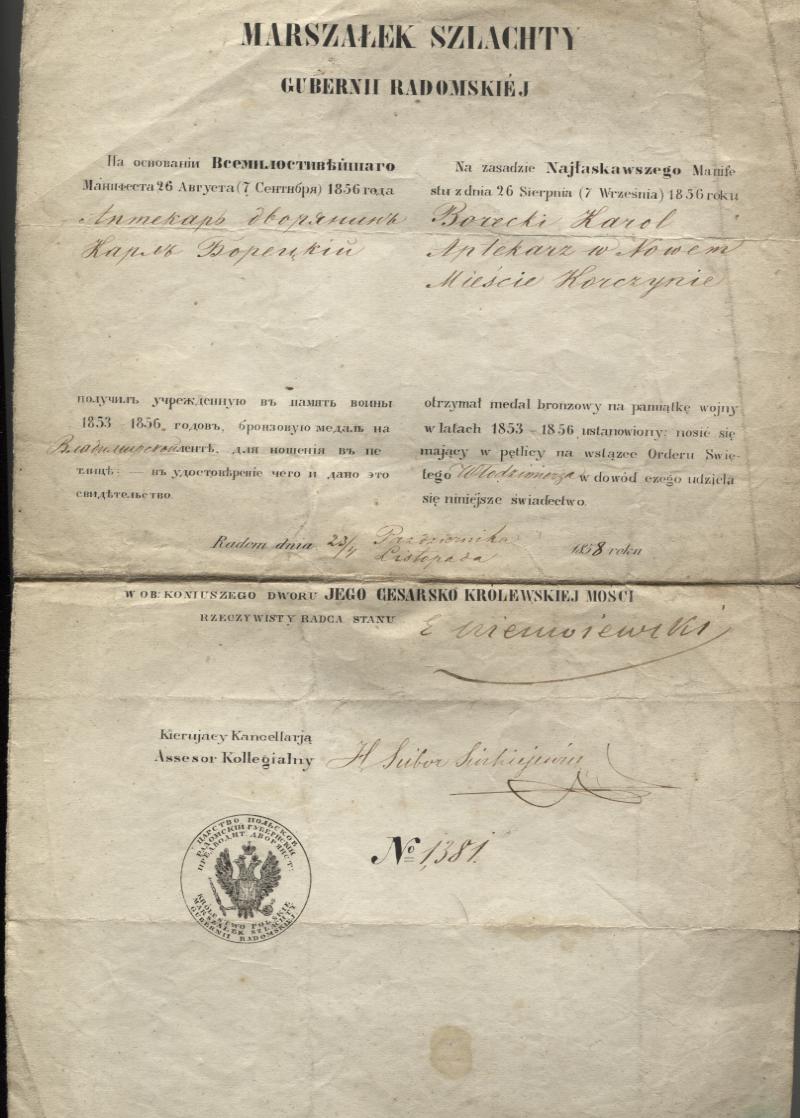 MARSZAŁEK SZLACHTY
GUBERNII RADOMSKIÉJ
На основаніи Всемилостивѣйшаго
Манифеста 26 Августа (7 Сентября) 1856 года
Аптекарь дворянинъ
Карлъ Борецкій
получилъ учрежденную въ память войны
1853–1856, годовъ, бронзовую медаль на
Владимирской лентѣ, для ношения въ пе
тлицѣ: — въ удостовѣреніе чего и дано это
свидѣтельство.
Na zasadzie Najłaskawszego Manife
stu z dnia 26 Sierpnia (7 Września) 1856 roku
Borecki Karol
Aptekarz w Nowem
Mieście Korczynie
otrzymał medal bronzowy na pamiątkę wojny
w latach 1853–1856 ustanowiony: nosić się
mający w pętlicy na wstązce Orderu Swię-
tego Włodzimierza w dowód czego udziela
się niniejsze świadectwo.
Radom dnia 23/4 Października Listopada 1858 roku
W OB: KONIUSZEGO DWORU JEGO CESARSKO KRÓLEWSKIEJ MOŚCI
RZECZYWISTY RADCA STANU E Niemojewski
Kierujący Kancellarją
Assesor Kollegialny H
ЦАРСТВО ПОЛЬСКОЕ
РАДОМСКІЙ ГУБЕРНСКІЙ
ПРЕДВОДИТ. ДВОРЯНСТ:
KRÓLESTWO POLSKIE
MARSZAŁEK SZLACHTY
GUBERNII RADOMSKIEJ
№ 1,381.